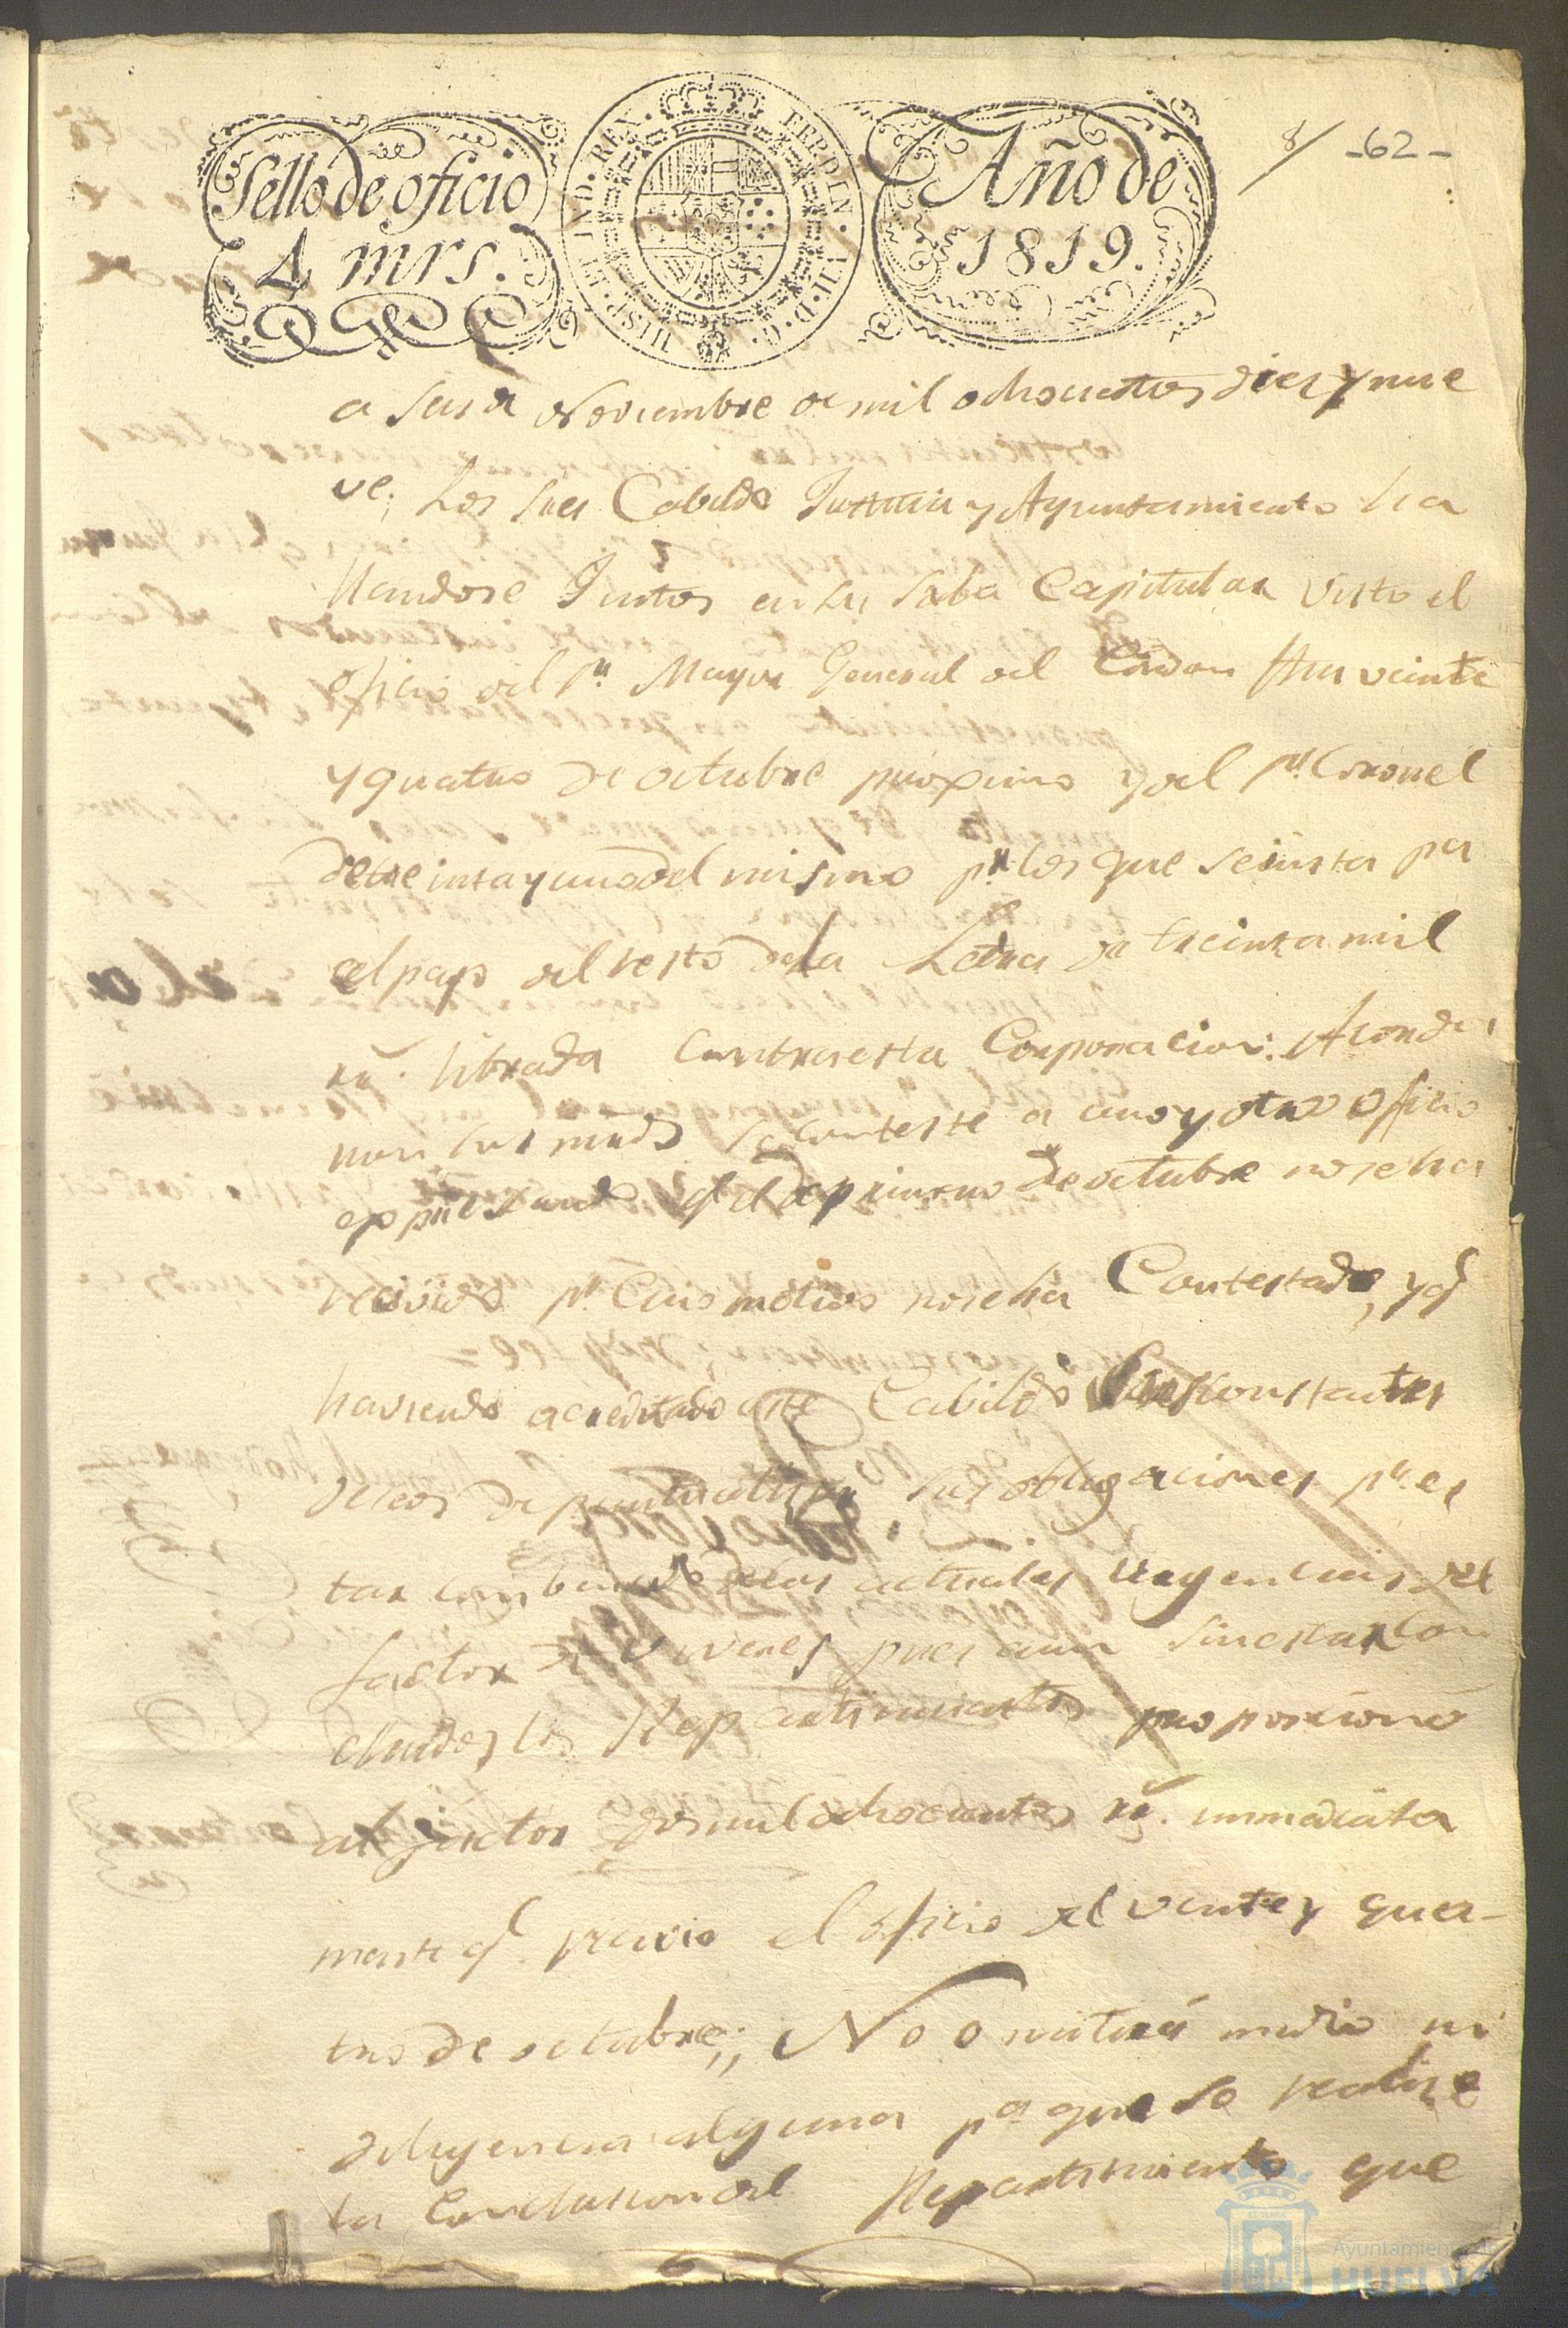 Sello de oficio
4 mrs.
HISP. ET IND. REX. FERDIN. VII. D. G.
Año de
1819.
8/ -62-
a seis de Noviembre de mil ochocientos diez y nue
ve; Los Sres Cabildo Justicia y Ayuntamiento ha
llandose Juntos en su Sala Capitular visto el
oficio del Sr. Mayor General del Cordon fha veinte
y quatro de octubre proximo y del Sr. Coronel
de treinta y uno del mismo pr. los que se insta pa
el pago del resto de la Letra de treinta mil
rs. librada contra esta Corporacion: Acorda
ron sus mrds se conteste a uno y otro oficio
expresando q. el de primero de octubre no se ha
recivido pr. cuio motivo no se ha Contestado, y q.
haviendo acreditado este Cabildo sus constantes
deseos de puntualizar sus obligaciones pr. es
tar combencido de las actuales urgencias del
factor de viveres pues aun sin estar con
cluidos los Repartimientos proporcionó
al factor dos mil ochocientos rs. inmediata
mente q. recivio el oficio del veinte y qua-
tro de octubre;, No omitirá medio ni
diligencia alguna pa. que se realize
la conclusion del Repartimiento que
Ayuntamiento de
HUELVA